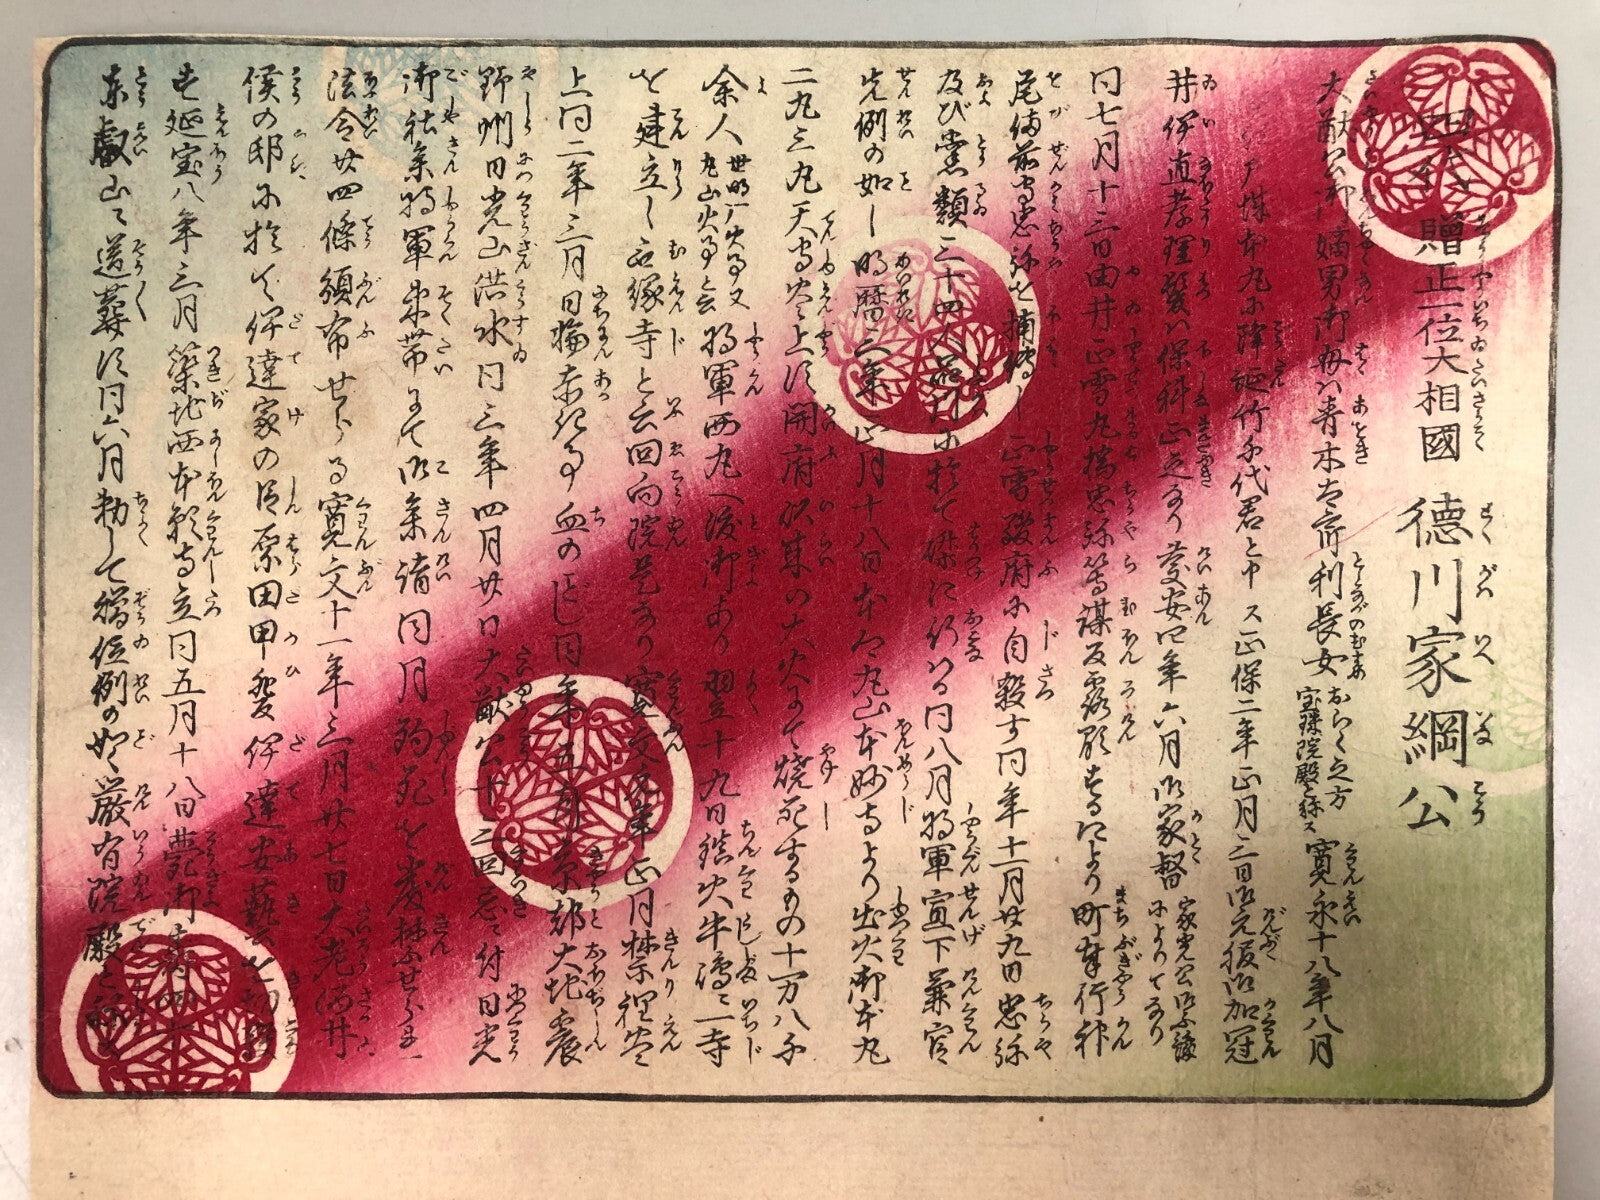 四代 贈正一位大相國 徳川家綱公
大猷公御嫡男御母ハ青木太郎利長女おらく之方宝珠院殿と称ス 寛永十八年八月
江戸城本丸に降誕竹千代君と申ス正保二年正月三日御元服御加冠
井伊直孝理髪ハ保科正之なり慶安四年六月御家督家光公御永譲によりてなり
同七月十三日由井正雪丸橋忠弥等謀反露顕するにより町奉行神
尾備前守忠弥を捕縛し正雪駿府に自殺す同年十一月廿九日忠弥
及び党類三十四人品川に於て磔に行はる同八月将軍宣下兼官
先例の如し明暦三年正月十八日本郷丸山本妙寺より出火御本丸
二九三九天守尽く上に開府以来の大火にて焼死するもの十万八千
余人世ニ明暦ノ火事又丸山火事と云将軍西丸へ渡御あり翌十九日鎮火牛島ニ一寺
を建立し無縁寺と云回向院是なり寛文元年正月禁裡炎
上同二年三月日輪赤き事血の如し同年五月京都大地震
野州日光山洪水同三年四月廿日大猷公十三回忌ニ付日光
御社参将軍束帯にて御参詣同月殉死を厳禁せらる
法令廿四條頒布せらる寛文十一年三月廿七日大老酒井
侯の邸に於て伊達家の臣原田甲斐伊達安藝を切殺
す延宝八年三月築地西本願寺立同五月十八日薨御寿四十
東叡山ニ送葬に同六月勅して贈位例の如く厳有院殿と称す